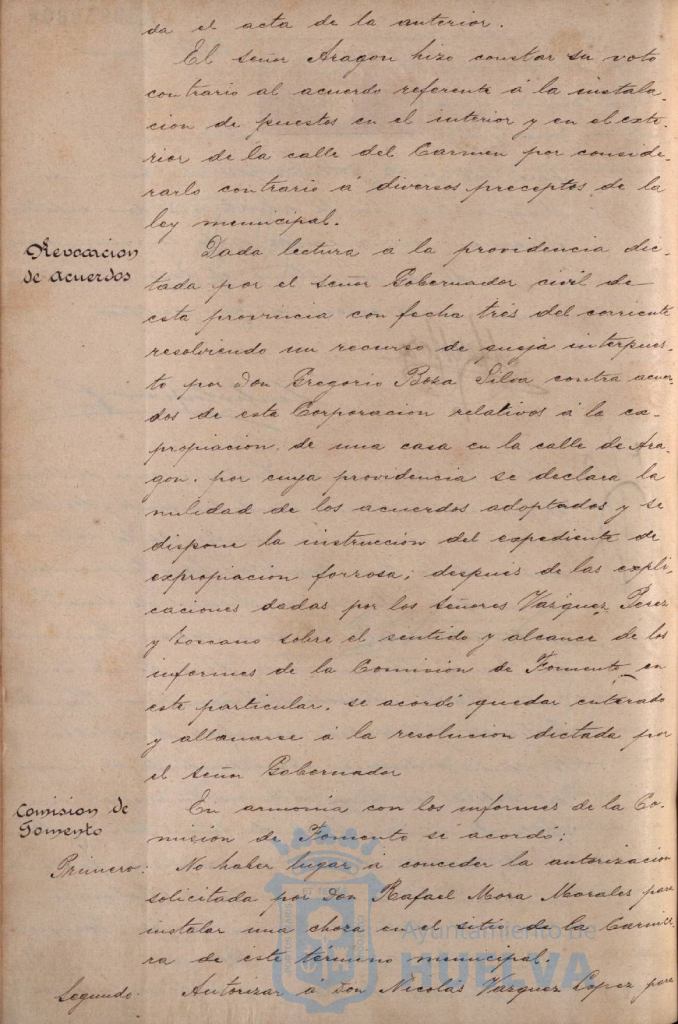 da el acta de la anterior.
El señor Aragon hizo constar su voto
contrario al acuerdo referente á la instala-
cion de puestos en el interior y en el exte-
rior de la calle del Carmen por conside-
rarlo contrario á diversos preceptos de la
ley municipal.
Revocacion
de acuerdos
Dada lectura á la providencia dic-
tada por el señor Gobernador civil de
esta provincia con fecha tres del corriente
resolviendo un recurso de queja interpues-
to por Don Gregorio Boza Silva contra acuer-
dos de esta Corporacion relativos á la ex-
propiacion de una casa en la calle de Ara-
gon, por cuya providencia se declara la
nulidad de los acuerdos adoptados y se
dispone la instrucción del expediente de
expropiacion forzosa; después de las expli-
caciones dadas por los señores Vazquez Perez
y Toscano sobre el sentido y alcance de los
informes de la Comision de Fomento en
este particular, se acordó quedar enterado
y allanarse á la resolucion dictada por
el señor Gobernador
Comision de
Fomento
En armonia con los informes de la Co-
mision de Fomento se acordó:
Primero: No haber lugar á conceder la autorizacion
solicitada por Don Rafael Mora Morales para
instalar una choza en el sitio de la
de este término municipal.
Segundo. Autorizar á Don Nicolas Vazquez Lopez para
Ayuntamiento De
HUELVA